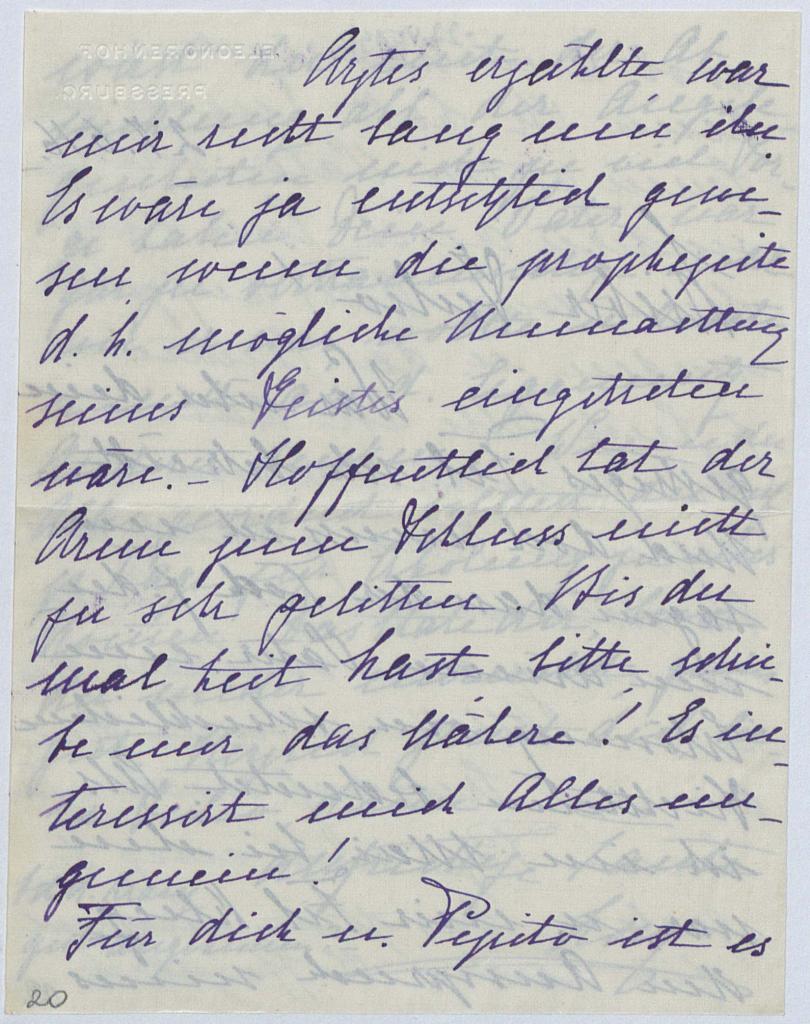 ELEONORENHOF
PRESSBURG
Arztes erzählte war
mir recht bang um ihn
Es wäre ja entsetzlich gewe-
sen wenn die prophezeite
d. h. mögliche Umnachtung
seines Geistes eingetreten
wäre. – Hoffentlich hat der
Arme zum Schluss nicht
zu sehr gelitten. Bis du
mal Zeit hast bitte schrei-
be mir das Nähere! Es in-
teressirt mich Alles un-
gemein!
Für dich u. Pepito ist es
20